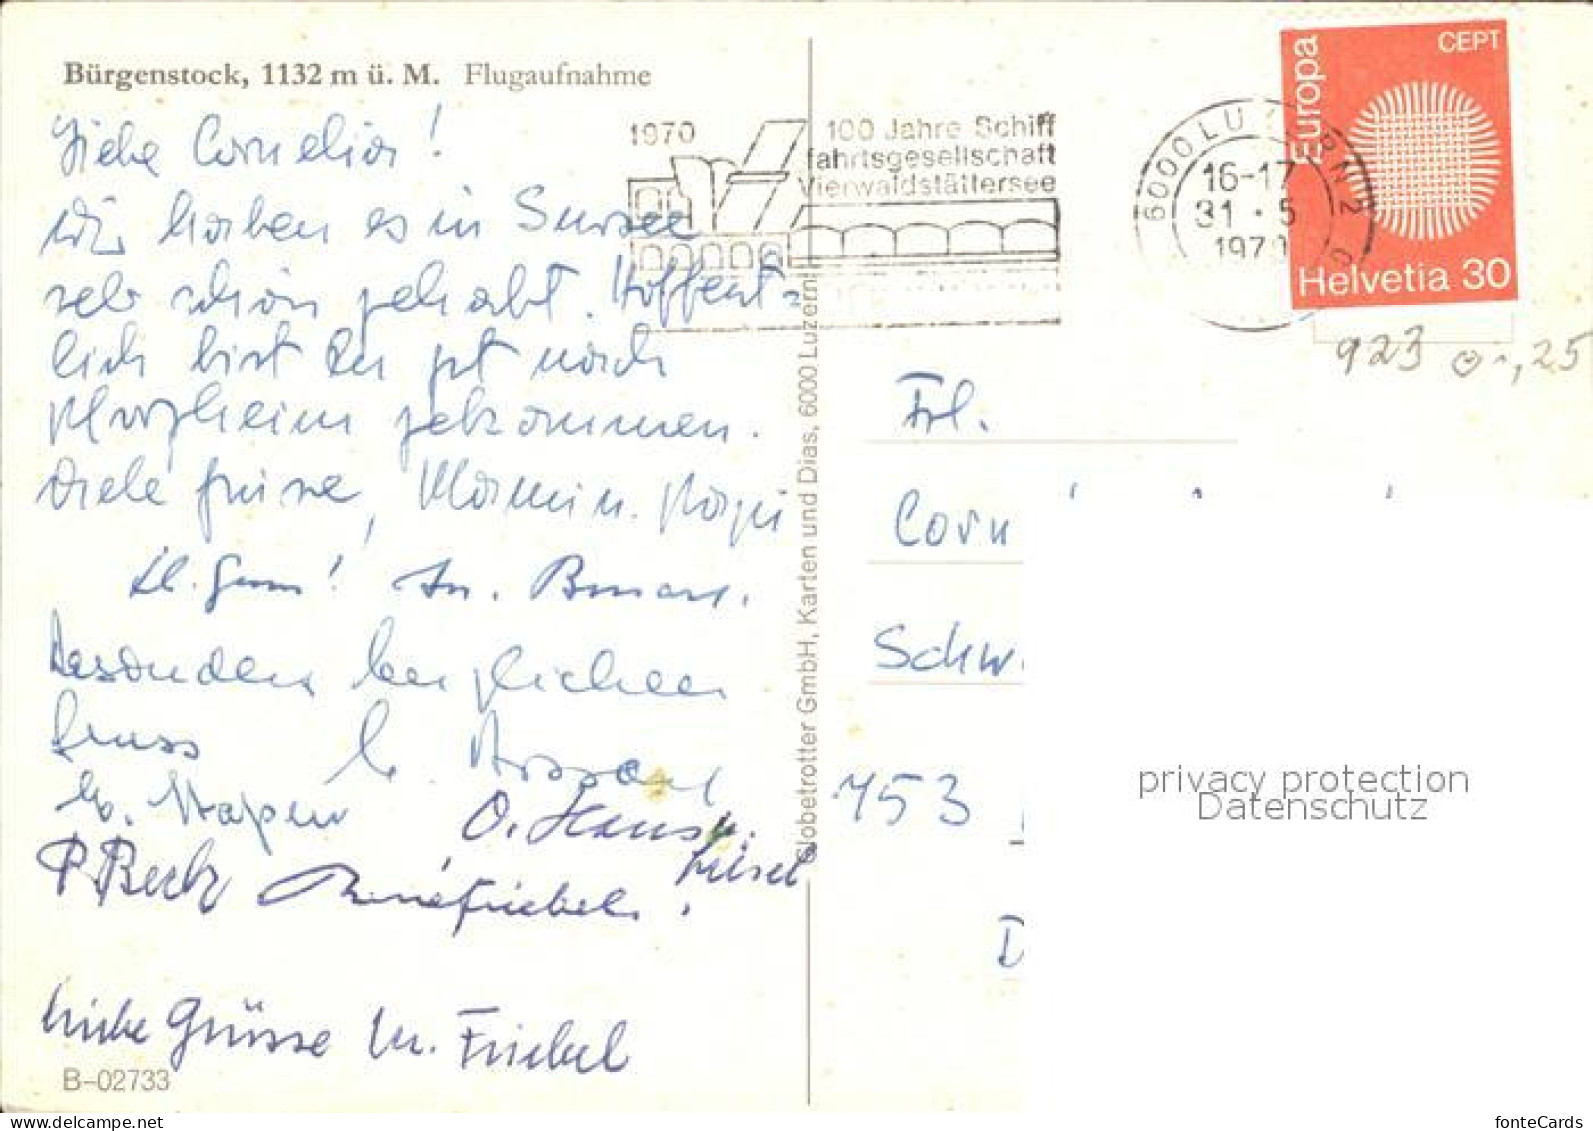 Bürgenstock, 1132 m ü. M. Flugaufnahme
Liebe Cornelia!
Wir haben es in Sursee
sehr schön gehabt. Hoffent-
lich bist Du gut nach
Pforzheim gekommen.
Viele Grüsse,
Besonders herzlichen
Gruss
O. Haus
Liesel
P. Beck
René Friebel
Liebe Grüsse M. Friebel
B-02733
Globetrotter GmbH, Karten und Dias, 6000 Luzern
1970
100 Jahre Schiff
fahrtsgesellschaft
Vierwaldstättersee
6000 LUZERN 2
16-17
31·5
1970
Europa
CEPT
Helvetia 30
923
-,25
Frl.
Corn
Schw
753
D
privacy protection
Datenschutz
fonteCards